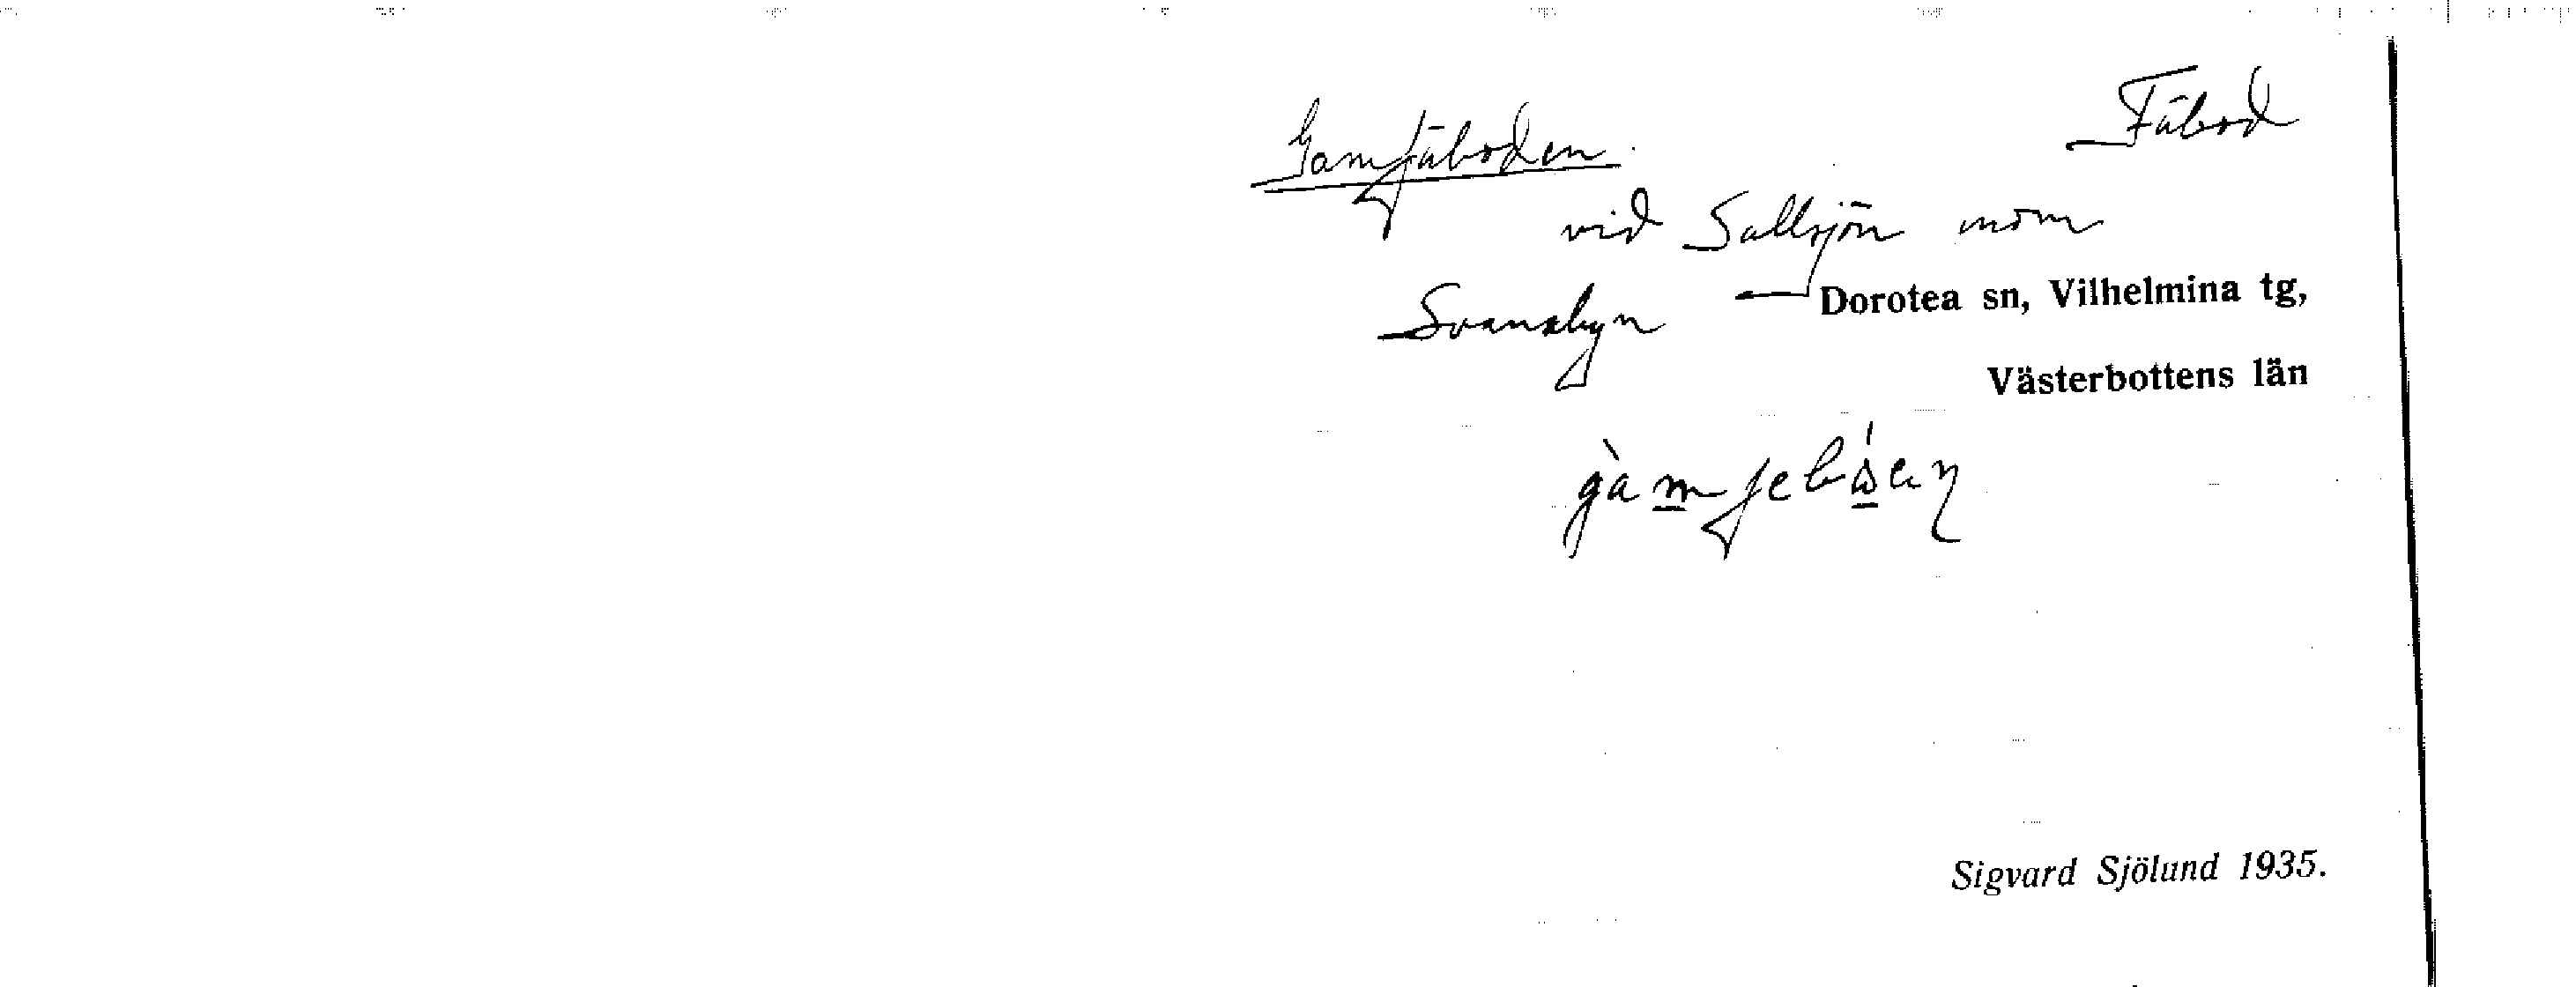 Gamfäboden. Fäbod
vid Sallsjön inom
Svanabyn Dorotea sn, Vilhelmina tg,
Västerbottens län
Sigvard Sjölund 1935.